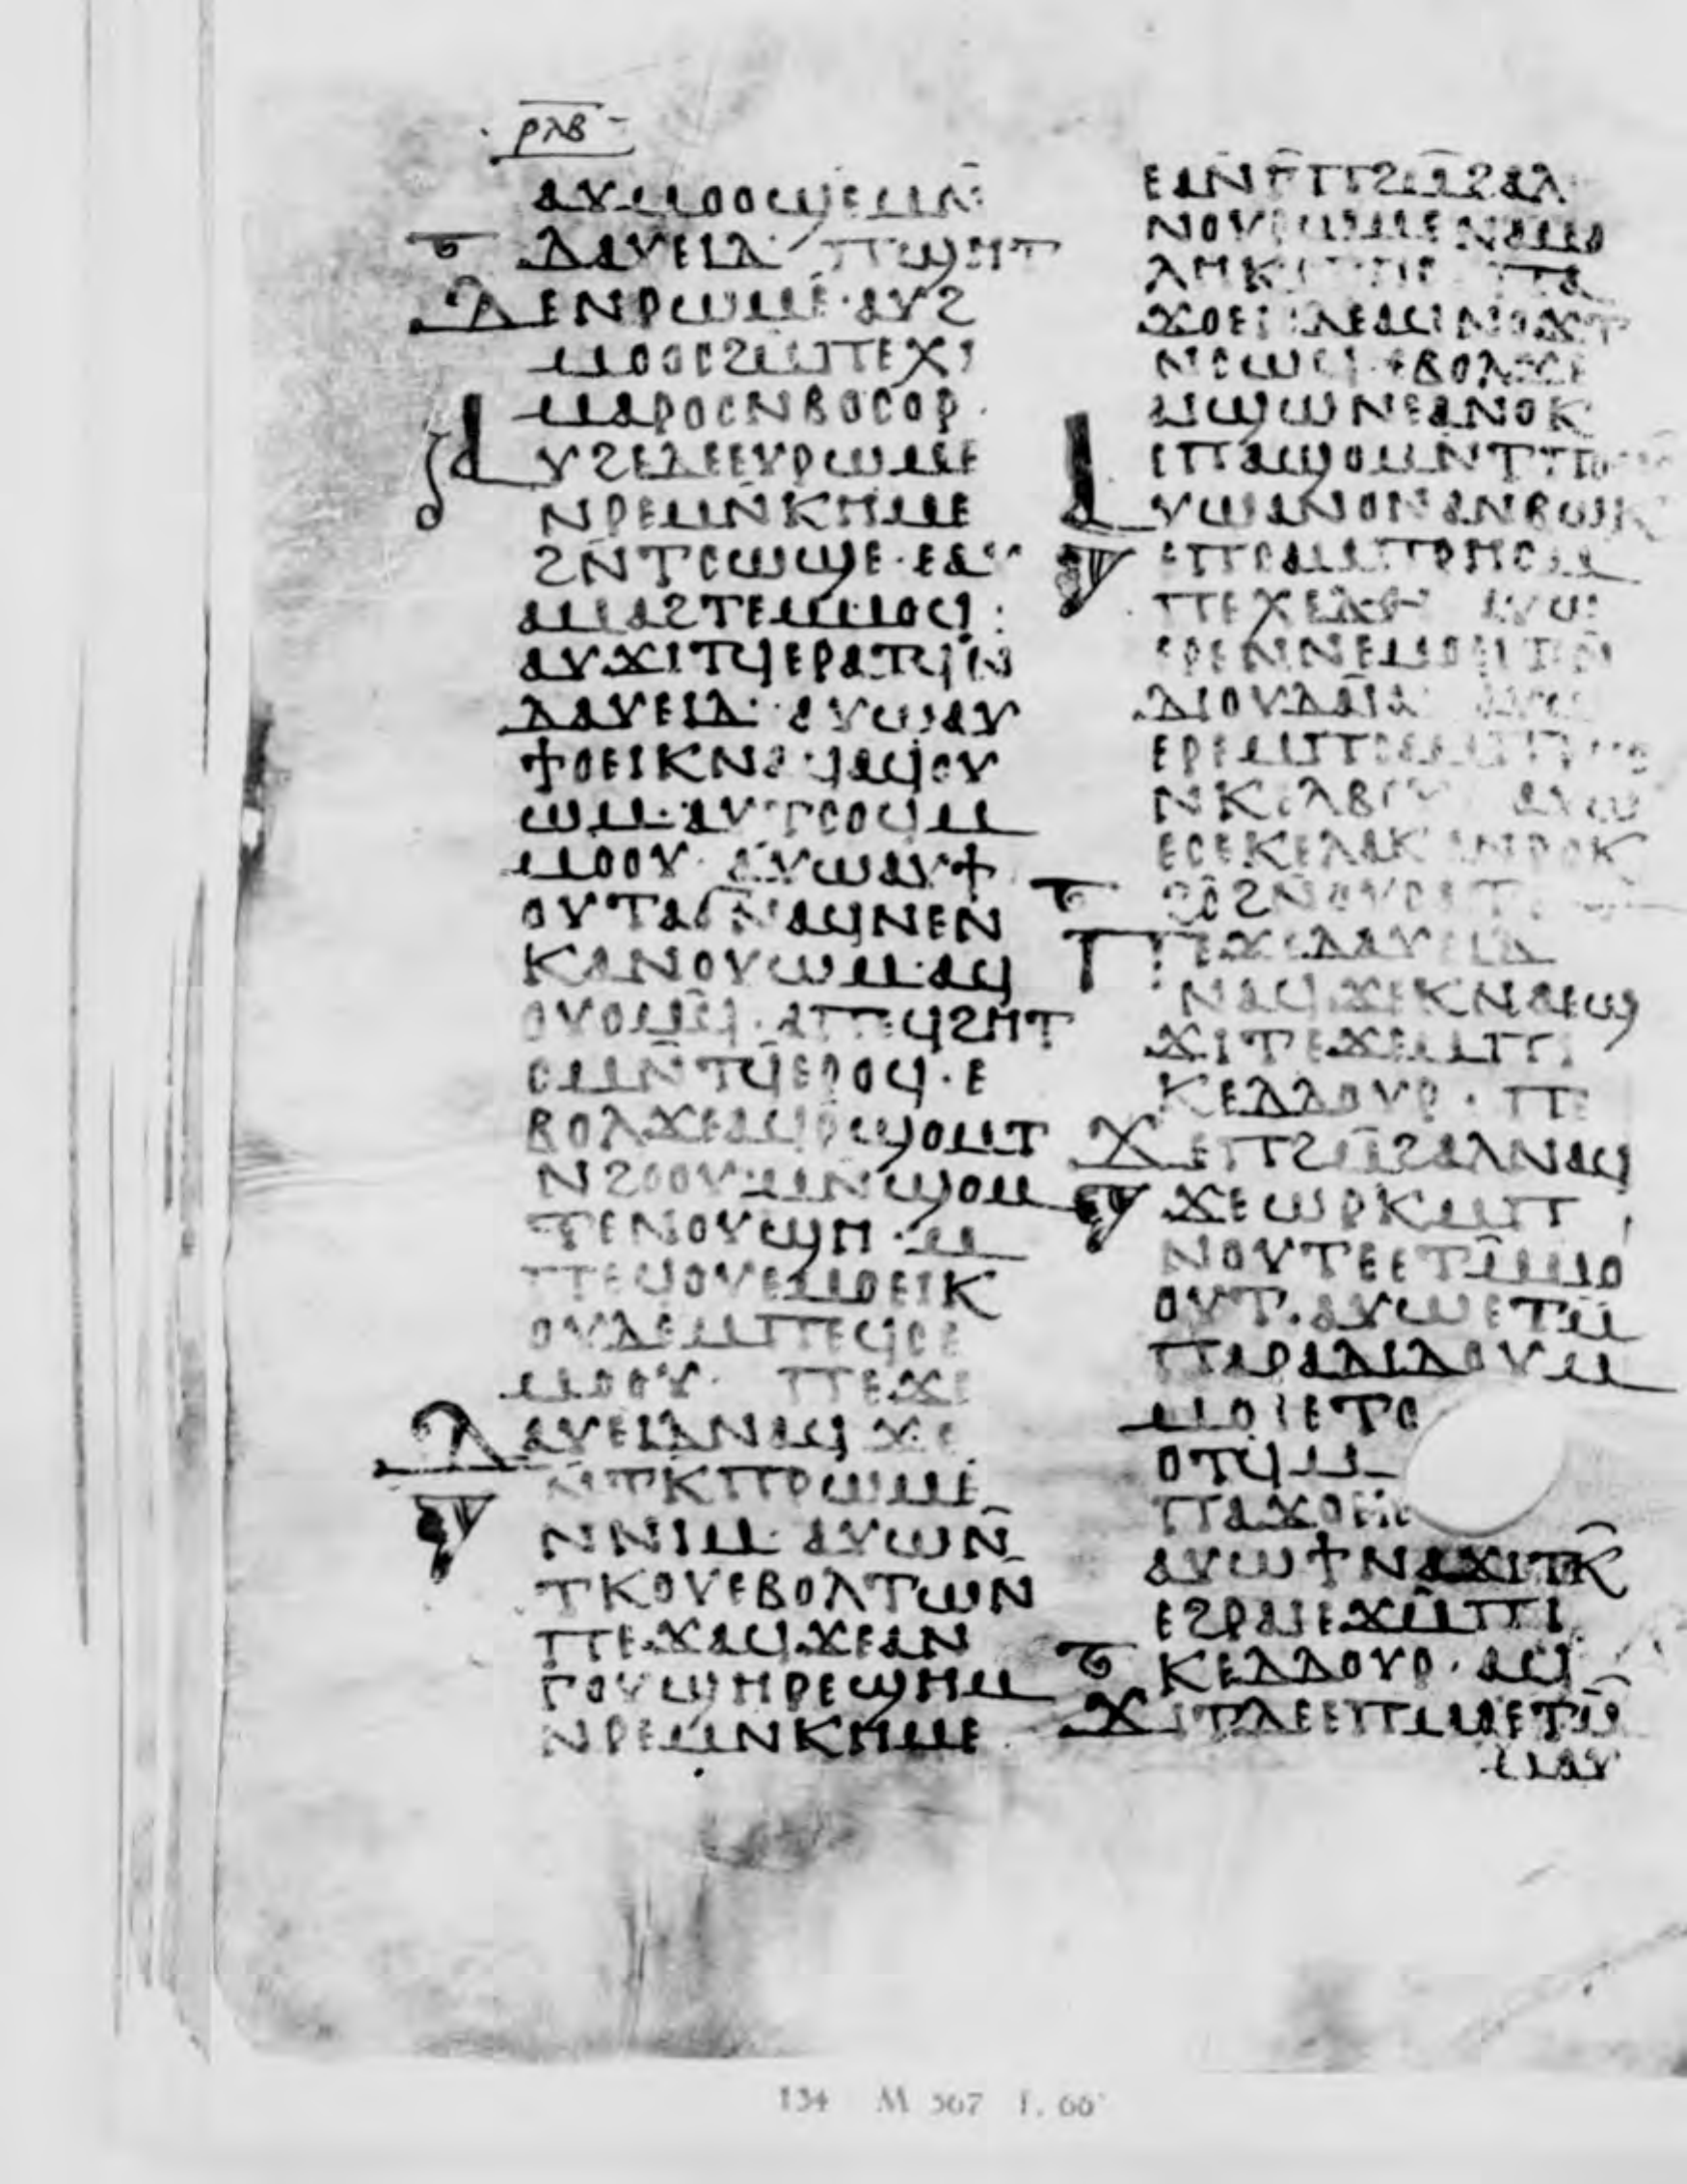 ⲣⲗⲃ
ⲁⲩⲙⲟⲟϣⲉⲙⲛ̄
ⲇⲁⲩⲉⲓⲇ· ⲡϣⲏⲧ
ⲇⲉⲛⲣⲱⲙⲉ·ⲁⲩϩ
ⲙⲟⲟⲥϩⲙ̄ⲡⲉⲭⲓ
ⲙⲁⲣⲟⲥⲛⲃⲟⲥⲟⲣ·
ⲁⲩϩⲉⲇⲉⲉⲩⲣⲱⲙⲉ
ⲛⲣⲉⲙⲛ̄ⲕⲏⲙⲉ
ϩⲛ̄ⲧⲥⲱϣⲉ·ⲉⲁⲩ
ⲁⲙⲁϩⲧⲉⲙⲙⲟϥ:
ⲁⲩϫⲓⲧϥⲉⲣⲁⲧϥ̄ⲛ
ⲇⲁⲩⲉⲓⲇ· ⲁⲩⲱⲁⲩ
ϯⲟⲉⲓⲕⲛⲁϥⲁϥⲟⲩ
ⲱⲙ·ⲁⲩⲧⲥⲟϥⲙ
ⲙⲟⲟⲩ· ⲁⲩⲱⲁⲩϯ
ⲟⲩⲧⲁϭⲛ̄ⲛⲁϥⲛⲉⲛ
ⲕⲁⲛⲟⲩⲱⲙ·ⲁϥ
ⲟⲩⲟⲙϥ̄·ⲁⲡⲉϥϩⲏⲧ
ⲥⲙⲛ̄ⲧϥ̄ⲉⲣⲟϥ·ⲉ
ⲃⲟⲗϫⲉⲁϥⲣ̄ϣⲟⲙⲧ
ⲛϩⲟⲟⲩ·ⲙⲛϣⲟⲙ
ⲧⲉⲛⲟⲩϣⲏ·ⲙ
ⲡⲉϥⲟⲩⲉⲙⲟⲉⲓⲕ
ⲟⲩⲇⲉⲙⲡⲉϥⲥⲉ
ⲙⲟⲟⲩ· ⲡⲉϫⲉ
ⲇⲁⲩⲉⲓⲇⲛⲁϥϫⲉ
ⲛ̄ⲧⲕⲡⲣⲱⲙⲉ
ⲛⲛⲓⲙ· ⲁⲩⲱⲛ̄
ⲧⲕⲟⲩⲉⲃⲟⲗⲧⲱⲛ
ⲡⲉϫⲁϥϫⲉⲁⲛ
ⲅⲟⲩϣⲏⲣⲉϣⲏⲙ
ⲛⲣⲉⲙⲛⲕⲏⲙⲉ
ⲉⲁⲛⲅ̄ⲡϩⲙ̄ϩⲁⲗ
ⲛⲟⲩⲣⲱⲙⲉⲛⲁⲙⲁ
ⲗⲏⲕⲓⲧⲏⲥ ⲡⲁ
ϫⲟⲉⲓⲥⲇⲉⲁϥⲛⲟϫⲧ
ⲛⲥⲱϥ·ⲉⲃⲟⲗϫⲉ
ⲁⲓϣⲱⲛⲉⲁⲛⲟⲕ
ⲙⲡⲁϣⲟⲙⲛⲧⲡⲟ
ⲁⲩⲱⲁⲛⲟⲛⲁⲛⲃⲱⲕ
ⲉⲡⲥⲁⲙⲡⲣⲏⲥⲙ
ⲡⲉⲭⲉⲗⲑⲓ ⲁⲩⲱ
ⲉⲣⲉⲛⲛⲉⲙⲉⲣⲓⲧⲛ̄
ϯⲟⲩⲇⲁⲓⲁ· ⲁⲩⲱ
ⲉⲣⲉⲙⲡⲥⲁⲙⲡⲣⲏⲥ
ⲛⲕⲁⲗⲃⲟⲩ ⲁⲩⲱ
ⲥⲉⲕⲉⲗⲁⲕ ⲁⲛⲣⲟⲕ
ϩⲥ̄ϩⲛⲟⲩⲥⲁⲧⲉ
ⲡⲉϫⲉⲇⲁⲩⲉⲓⲇ
ⲛⲁϥ·ϫⲉⲕⲛⲁⲉϣ
ϫⲓⲧⲉϫⲙ̄ⲡⲓ
ⲕⲉⲇⲇⲟⲩⲣ· ⲡⲉ
ϫⲉⲡϩⲙ̄ϩⲁⲗⲛⲁϥ
ϫⲉⲱⲣⲕⲙⲡ
ⲛⲟⲩⲧⲉⲉⲧⲙ̄ⲙⲟ
ⲟⲩⲧ·ⲁⲩⲱⲉⲧⲙ̄
ⲡⲁⲣⲁⲇⲓⲇⲟⲩⲙ
ⲙⲟⲓⲉⲧⲟ
ⲟⲧϥⲙ
ⲡⲁϫⲟⲉⲓⲥ
ⲁⲩⲱϯⲛⲁϫⲓⲧⲕ̄
ⲉϩⲣⲁⲓⲉϫⲙ̄ⲡⲓ
ⲕⲉⲇⲇⲟⲩⲣ· ⲁϥ
ϫⲓⲧϥⲇⲉⲉⲡⲙⲁⲉⲧⲙ̄
ⲙⲁⲩ
134 M 567 f. 66ᵛ